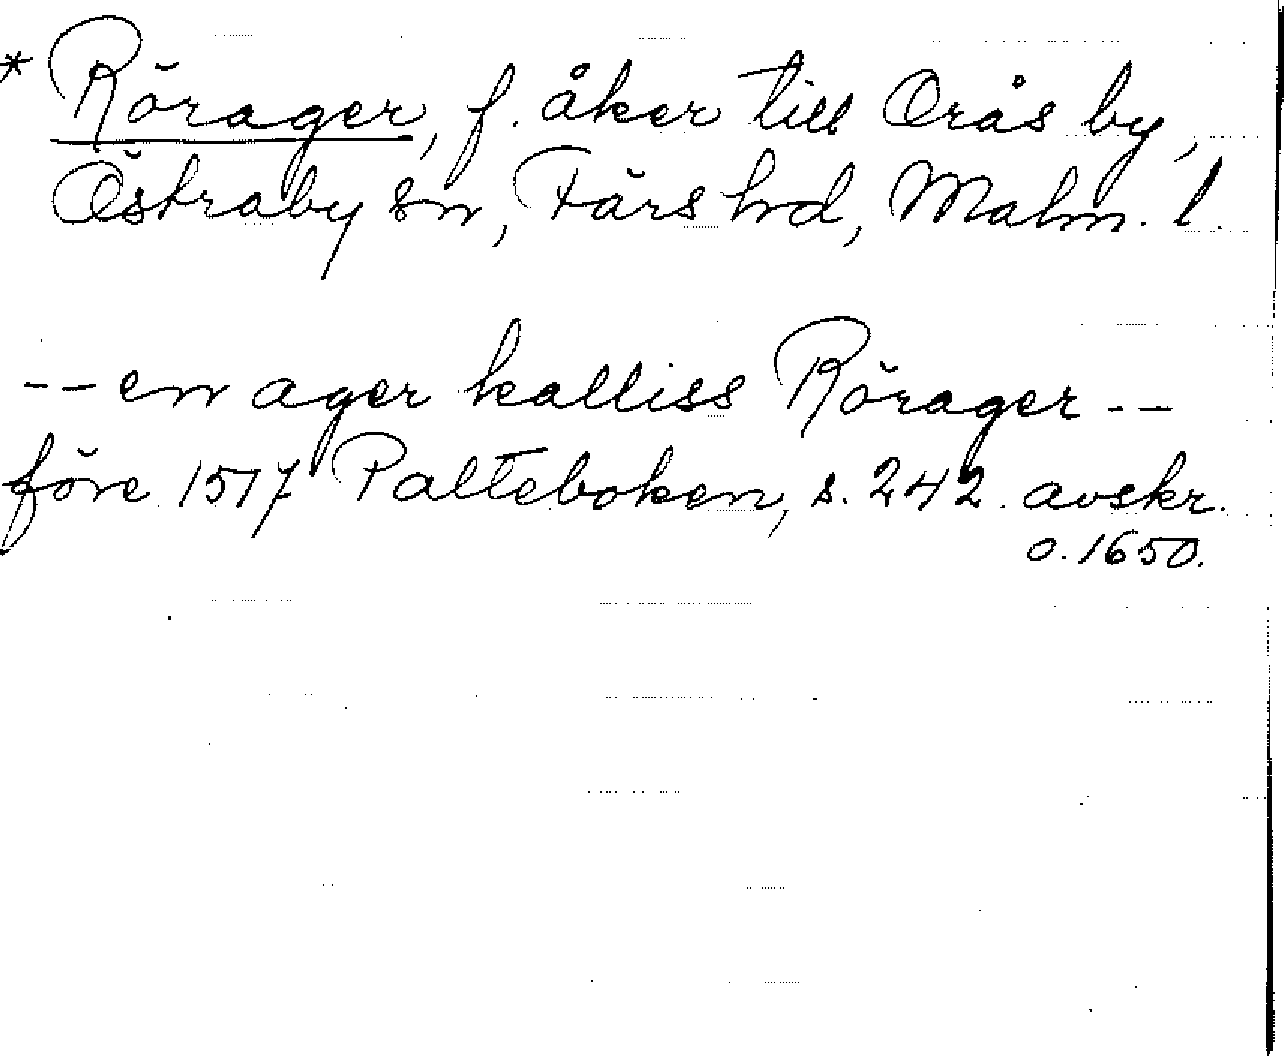 * Rörager, f. åker till Orås by,
Östraby sn, Färs hd, Malm. l.
-- en ager kalliss Rörager --
före 1517 Palteboken, s. 242. avskr.
o. 1650.